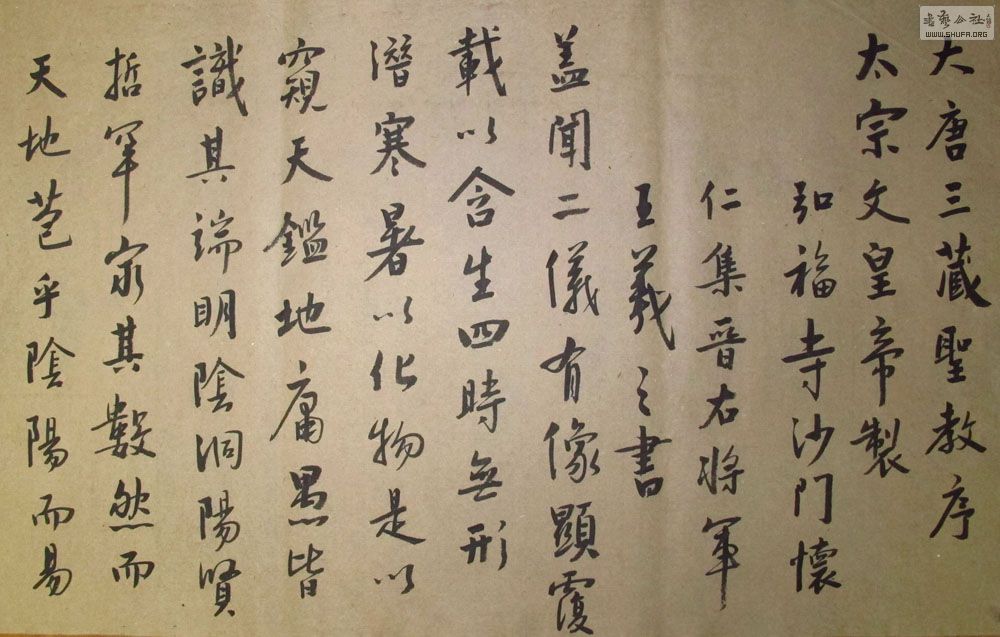 大唐三蔵聖教序
太宗文皇帝製
弘福寺沙門懷
仁集晉右将軍
王羲之書
盖聞二儀有像顯覆
載以含生四時無形
潛寒暑以化物是以
窺天鑑地庸愚皆
識其端明陰洞陽賢
哲罕窮其數然而
天地苞乎陰陽而易
書藝公社
WWW.SHUFA.ORG